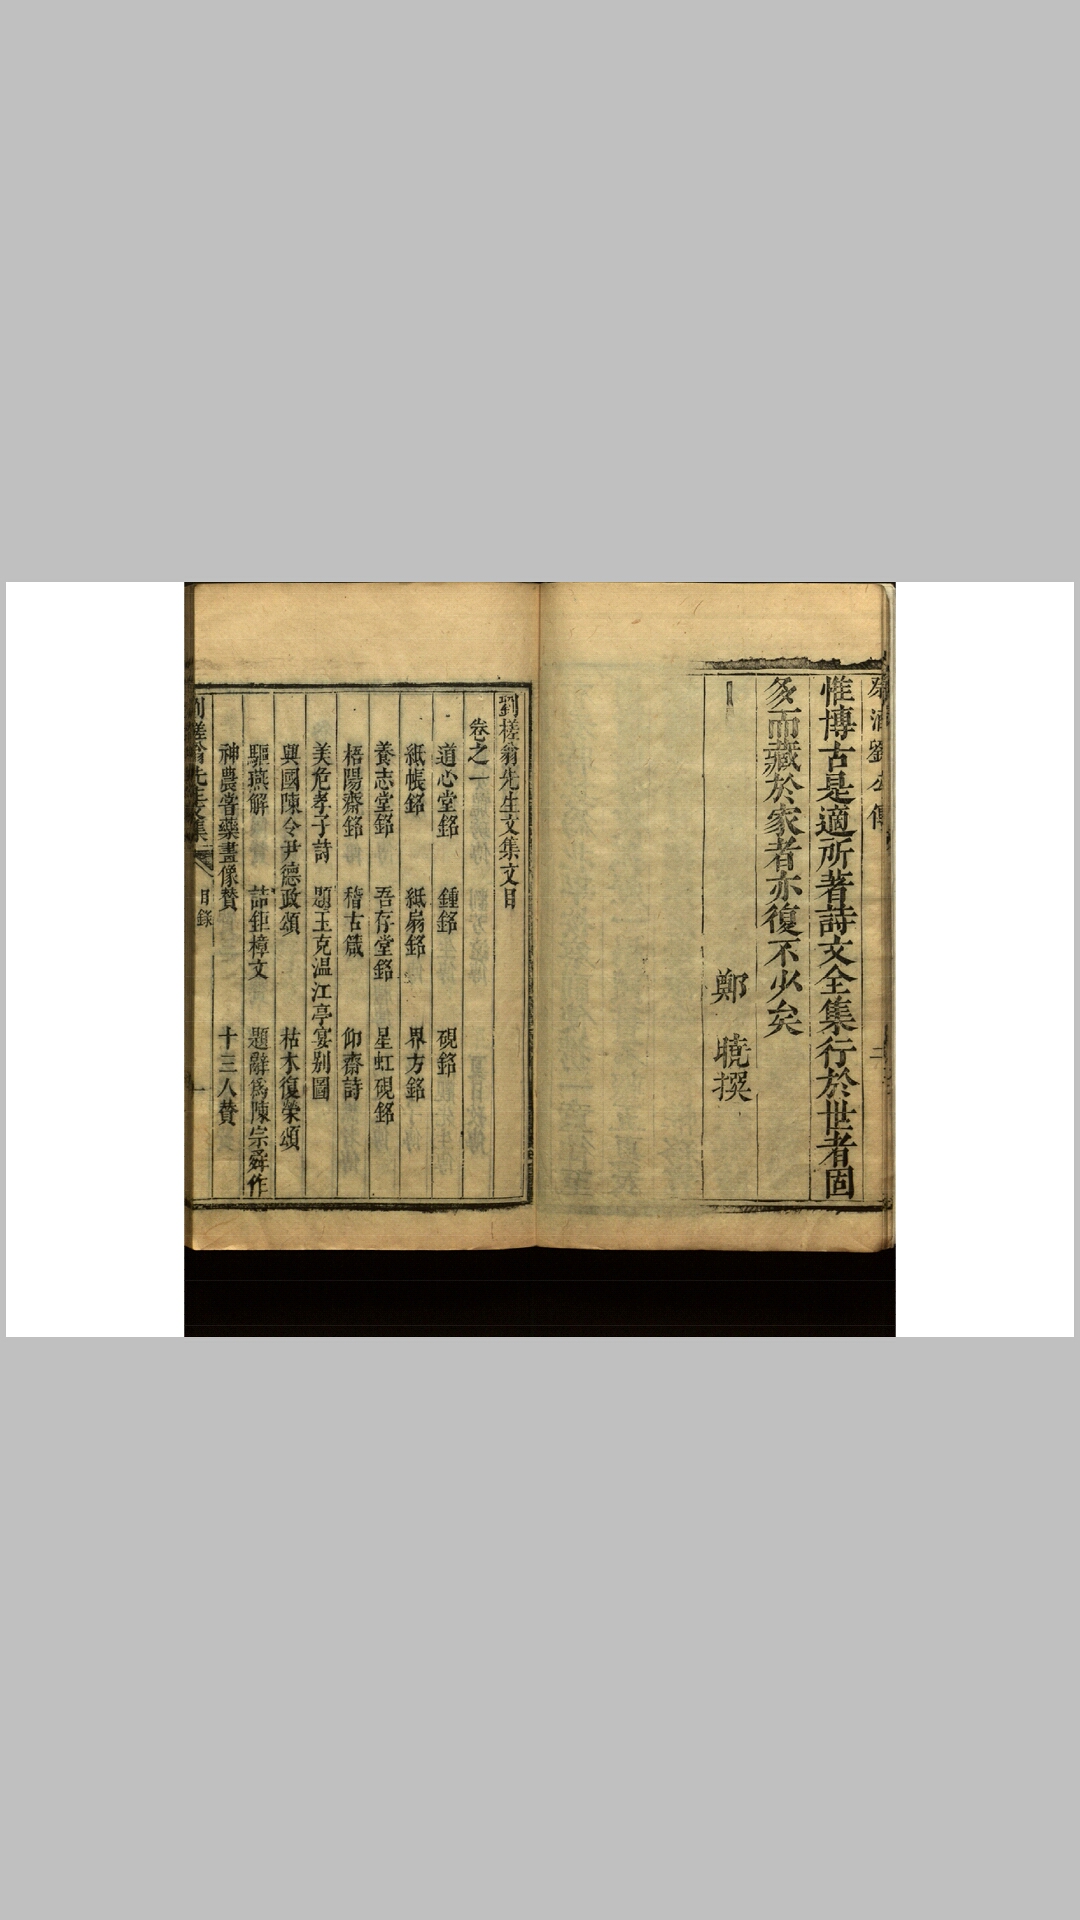 劉公傳
惟博古是適所著詩文全集行於世者固
多而藏於家者亦復不少矣
鄭 曉撰
劉槎翁先生文集文目
卷之一
道心堂銘 鍾銘 硯銘
紙帳銘 紙扇銘 界方銘
養志堂銘 吾存堂銘 星虹硯銘
梧陽齋銘 稽古箴 仰齋詩
美危孝子詩 題王克温江亭宴别圖
興國陳令尹德政頌 枯木復榮頌
驅燕解 詰鉅樟文 題辭爲陳宗舜作
神農嘗藥畫像賛 十三人賛
劉槎翁先生文集 目錄 一